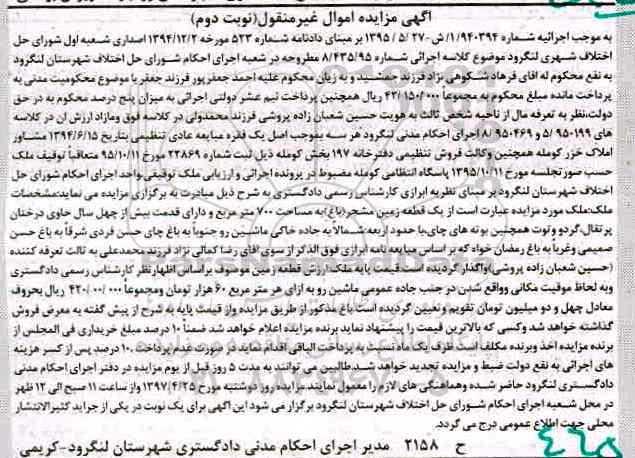 آگهی مزایده اموال غیرمنقول(نوبت دوم)
به موجب اجرائیه شماره ۱/۹۴۰۳۹۴/ش-۲۷/ ۵/ ۱۳۹۵ بر مبنای دادنامه شماره ۵۲۳ مورخه ۱۳۹۴/۱۲/۲ اصداری شعبه اول شورای حل
اختلاف شهری لنگرود موضوع کلاسه اجرائی شماره ۸/۴۳۵/۹۵ مطروحه در شعبه اجرای احکام شورای حل اختلاف شهرستان لنگرود
به نفع محکوم له اقای فرهاد شکوهی نژاد فرزند جمشید و به زیان محکوم علیه احمد جعفرپور فرزند جعفر با موضوع محکومیت مدنی به
پرداخت مانده مبلغ محکوم به مجموعاً ۴۲/۱۵۰/۰۰۰ ریال همچنین پرداخت نیم عشر دولتی اجرائی به میزان پنج درصد محکوم به در حق
دولت،نظر به تعرفه مال از ناحیه شخص ثالث به هویت حسین شعبان زاده پروشی فرزند محمدولی در کلاسه فوق ومازاد ارزش ان در کلاسه
های ۵/۹۵۰۱۹۹ و ۸/۹۵۰۴۶۹ اجرای احکام مدنی لنگرود هر سه بموجب اصل یک فقره مبایعه عادی تنظیمی بتاریخ ۱۳۹۴/۶/۱۵ مشاور
املاک خزر کومله همچنین وکالت فروش تنظیمی دفترخانه ۱۹۷ بخش کومله ذیل ثبت شماره ۲۲۸۶۹ مورخ ۹۵/۱۰/۱۱ متعاقباً توقیف ملک
حسب صورتجلسه مورخ ۱۳۹۵/۱۰/۱۱ پاسگاه انتظامی کومله مضبوط در پرونده اجرائی و ارزیابی ملک توقیفی،واحد اجرای احکام شورای حل
اختلاف شهرستان لنگرود بر مبنای نظریه ابرازی کارشناس رسمی دادگستری به شرح ذیل مبادرت به برگزاری مزایده می نماید:مشخصات
ملک:ملک مورد مزایده عبارت است از یک قطعه زمین مشجر(باغ)به مساحت ۷۰۰ متر مربع و دارای قدمت بیش از چهل سال حاوی درختان
پرتقال،گردو وتوت همچنین بوته های چای،با حدود اربعه:شمالا به جاده خاکی ماشین رو جنوباً به باغ چای حسن فردی شرقاً به باغ حسن
صمیمی وغرباً به باغ رمضان خواه که بر اساس مبایعه نامه ابرازی فوق الذکر از سوی اقای رضا کمالی نژاد فرزند محمدعلی به ثالث تعرفه کننده
(حسین شعبان زاده پروشی)واگذار گردیده است.قیمت پایه ملک:ارزش قطعه زمین موصوف براساس اظهارنظر کارشناس رسمی دادگستری
وبه لحاظ موقیت مکانی وواقع شدن در جنب جاده عمومی ماشین رو به ازای هر متر مربع ۶۰ هزار تومان ومجموعاً ۴۲۰/۰۰۰/۰۰۰ ریال بحروف
معادل چهل و دو میلیون تومان تقویم وتعیین گردیده است باغ مذکور از طریق مزایده واز قیمت پایه به شرح از پیش گفته به معرض فروش
گذاشته خواهد شد وکسی که بالاترین قیمت را پیشنهاد نماید برنده مزایده اعلام خواهد شد ضمناً ۱۰ درصد مبلغ خریداری فی المجلس از
برنده مزایده اخذ وبرنده مکلف است ظرف یک ماه نسبت به پرداخت الباقی اقدام نماید در صورت عدم پرداخت ۱۰ درصد پس از کسر هزینه
های اجرائی به نفع دولت ضبط و مزایده تجدید خواهد شد.طالبین می توانند به مدت ۵ روز قبل از یوم مزایده در دفتر اجرای احکام مدنی
دادگستری لنگرود حاضر شده وهماهنگی های لازم را معمول نمایند.مزایده روز دوشنبه مورخ ۱۳۹۷/۴/۲۵ واز ساعت ۱۱ صبح الی ۱۲ ظهر
در محل شعبه اجرای احکام شورای حل اختلاف شهرستان لنگرود برگزار می شود این اگهی برای یک نوبت در یکی از جراید کثیرالانتشار
محلی جهت اطلاع عمومی درج می گردد.
ح ۲۱۵۸ مدیر اجرای احکام مدنی دادگستری شهرستان لنگرود-کریمی